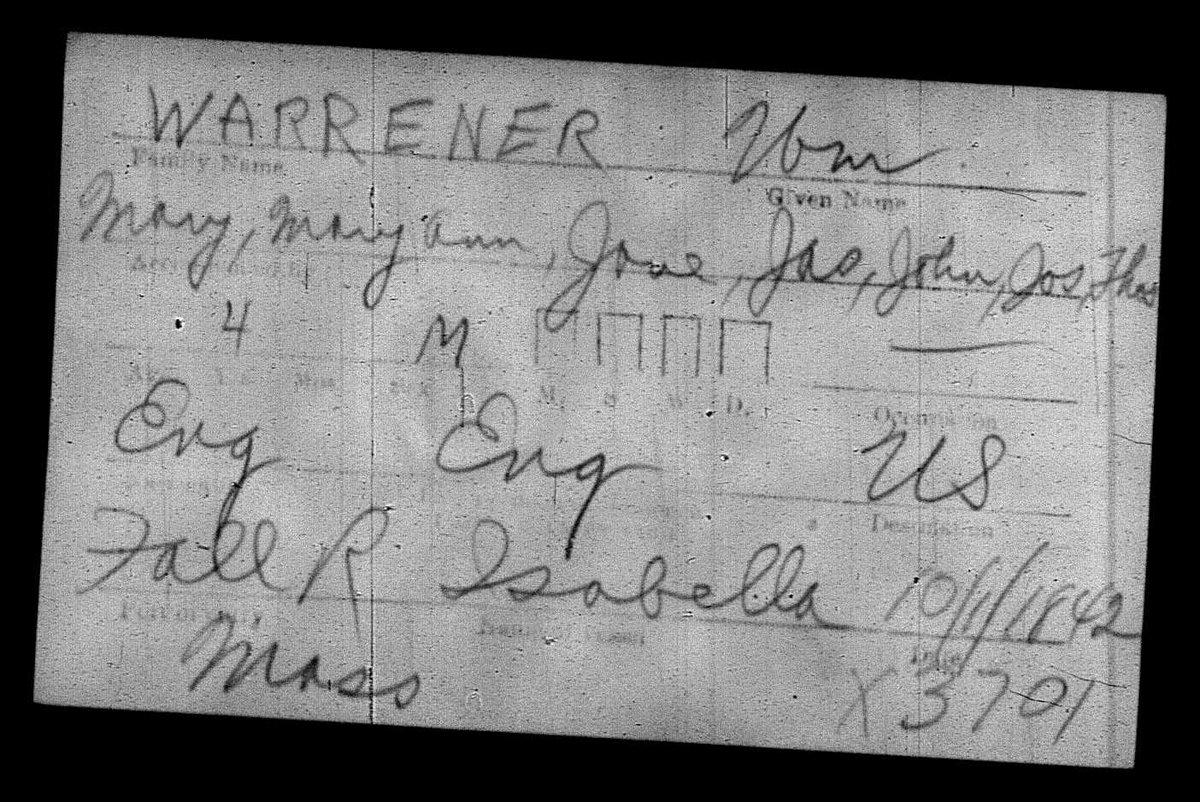 WARRENER Wm
Family Name Given Name
Mary, Mary Ann, Jane, Jas, John, Jos, Thos
Accompanied by
4 M —
Age Yrs Mos Sex M. S. W. D. Occupation
Eng Eng US
Destination
Fall R Isabella 10/1/1842
Port of entry Name of Vessel Date
Mass X3701